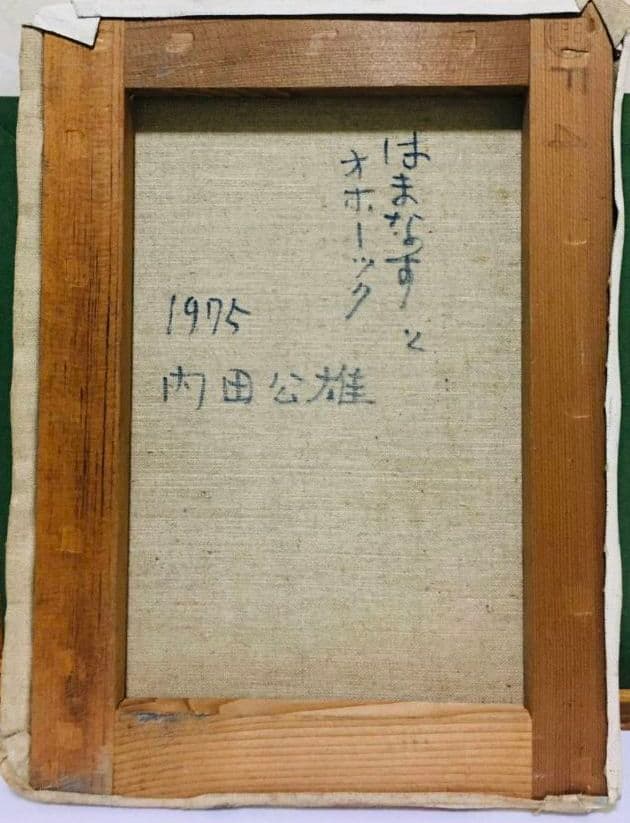 はまなすと
オホーツク
1975
内田公雄
F4